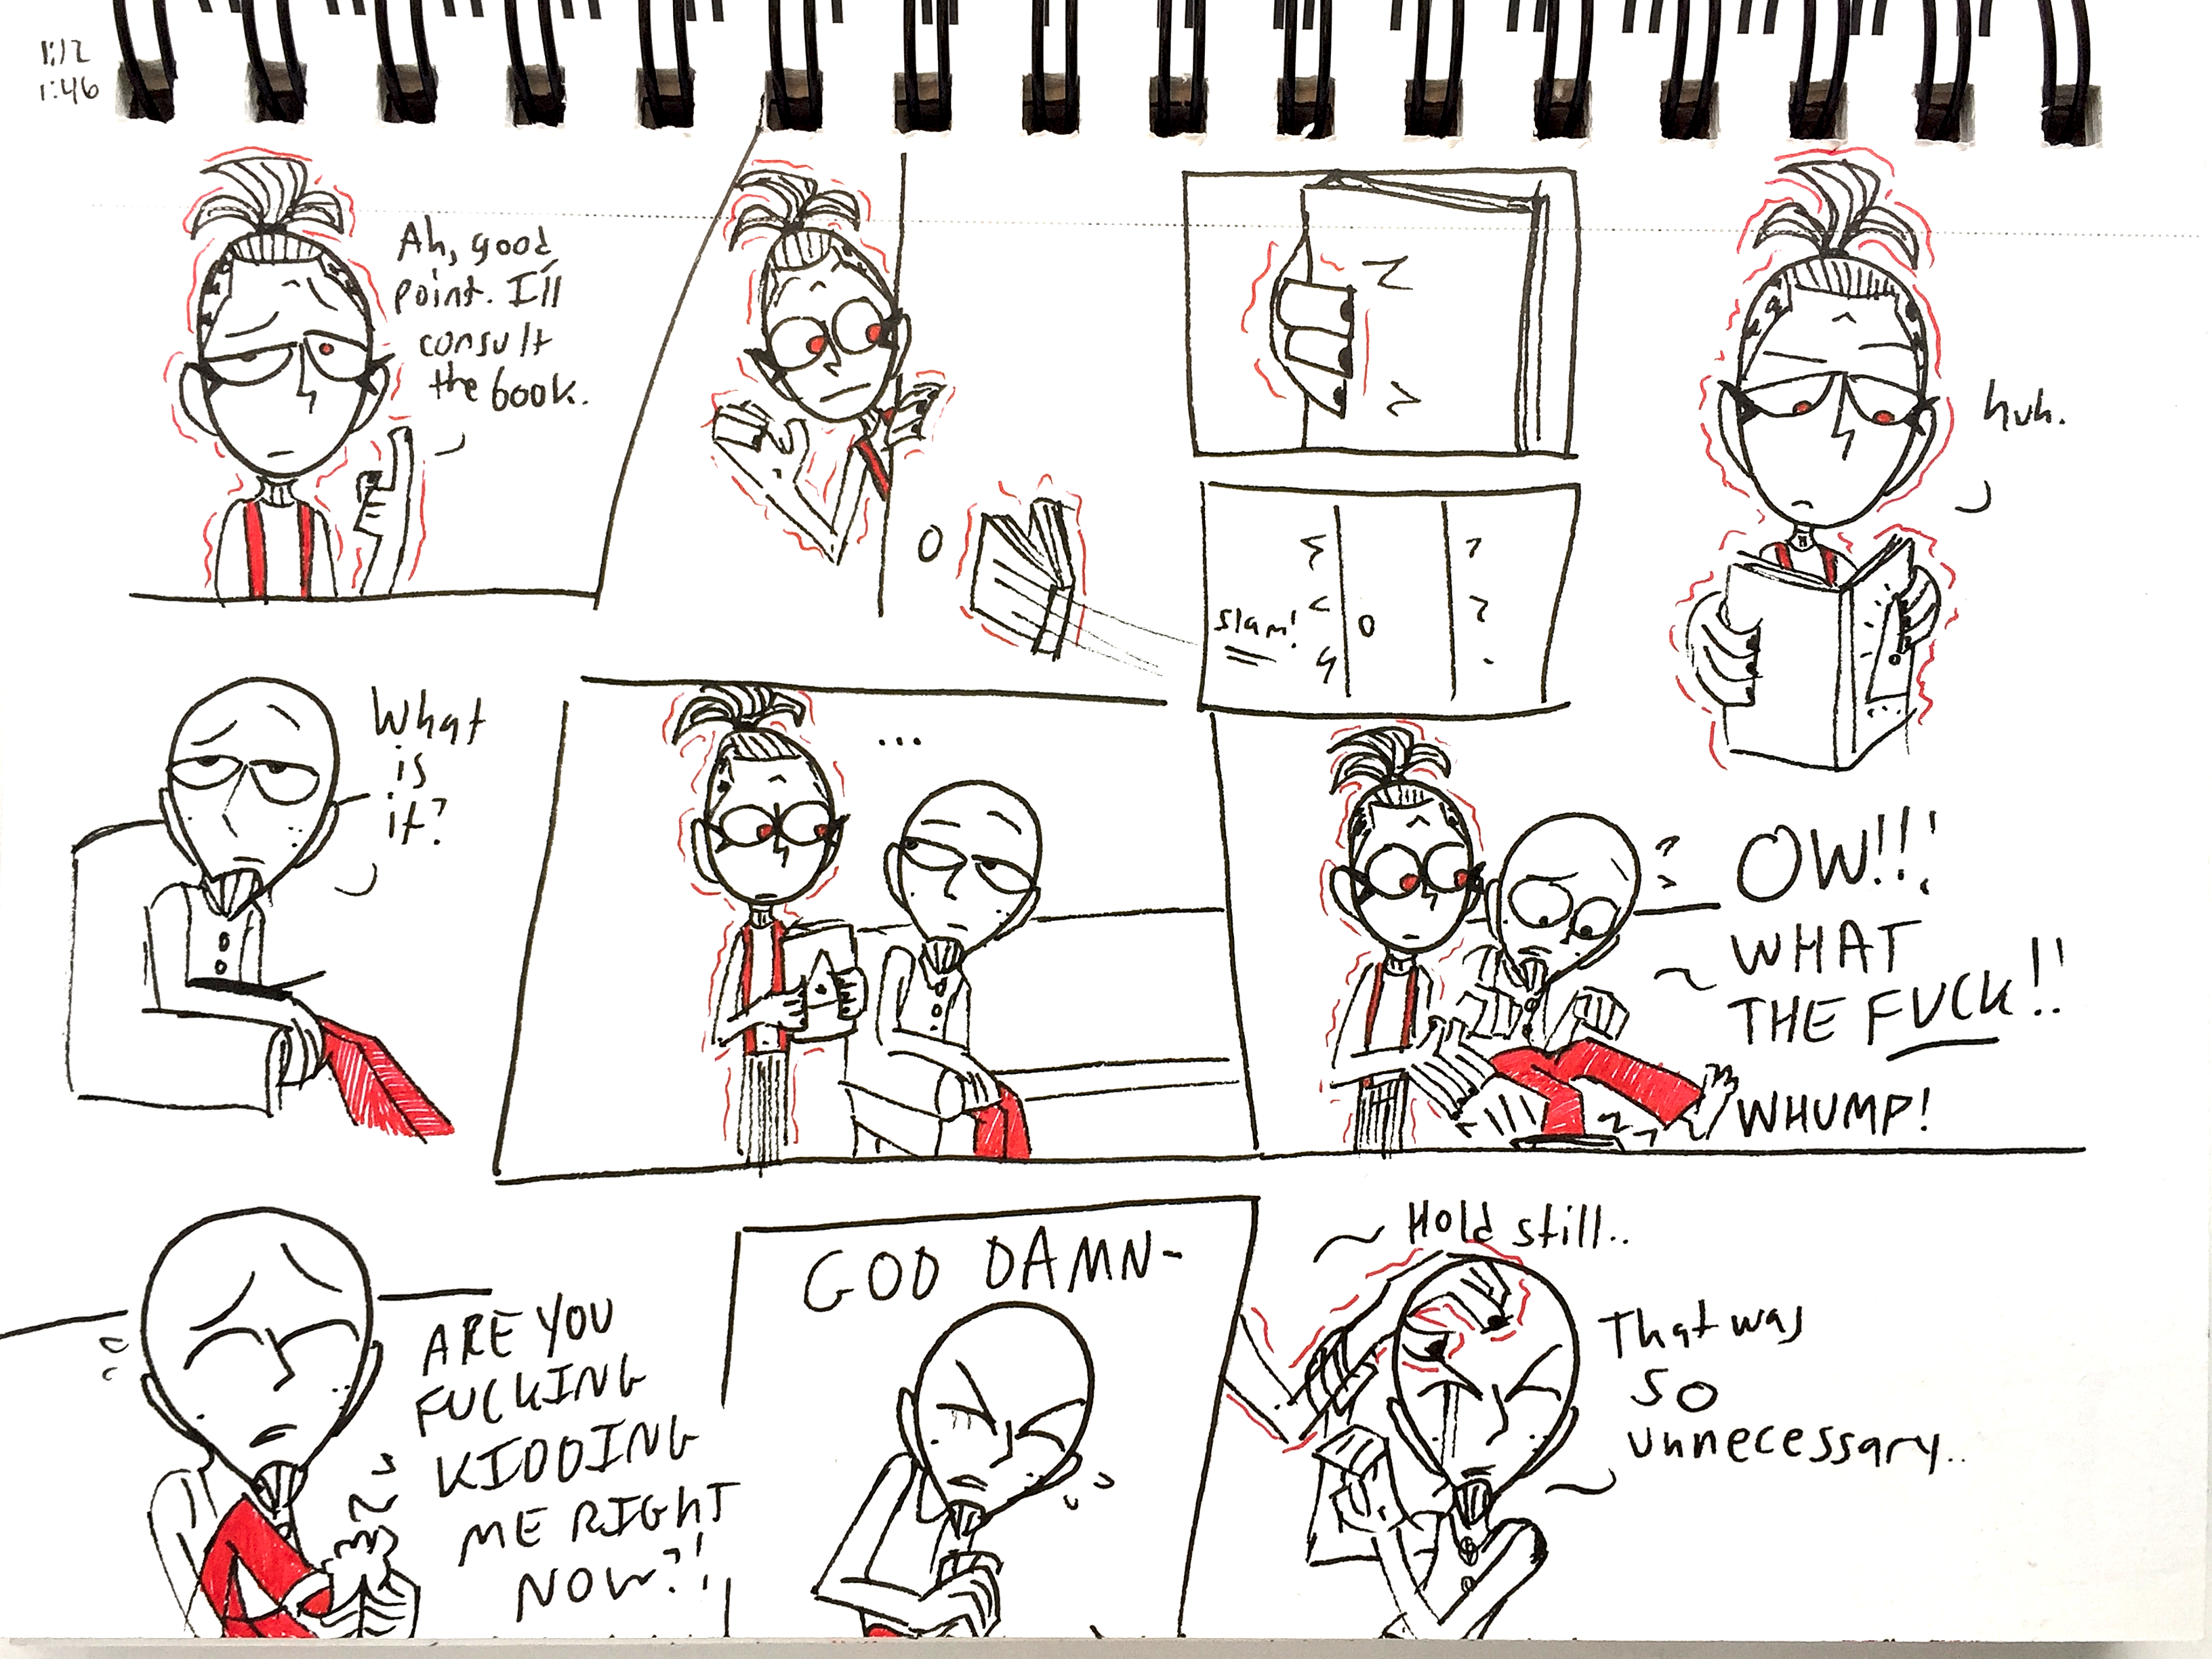 1:12
1:46
Ah, good
point. I'll
consult
the book.
slam!
huh.
What
is
it?
...
OW!!!
WHAT
THE FUCK!!
WHUMP!
ARE YOU
FUCKING
KIDDING
ME RIGHT
NOW?!
GOD DAMN-
Hold still..
That was
so
unnecessary..